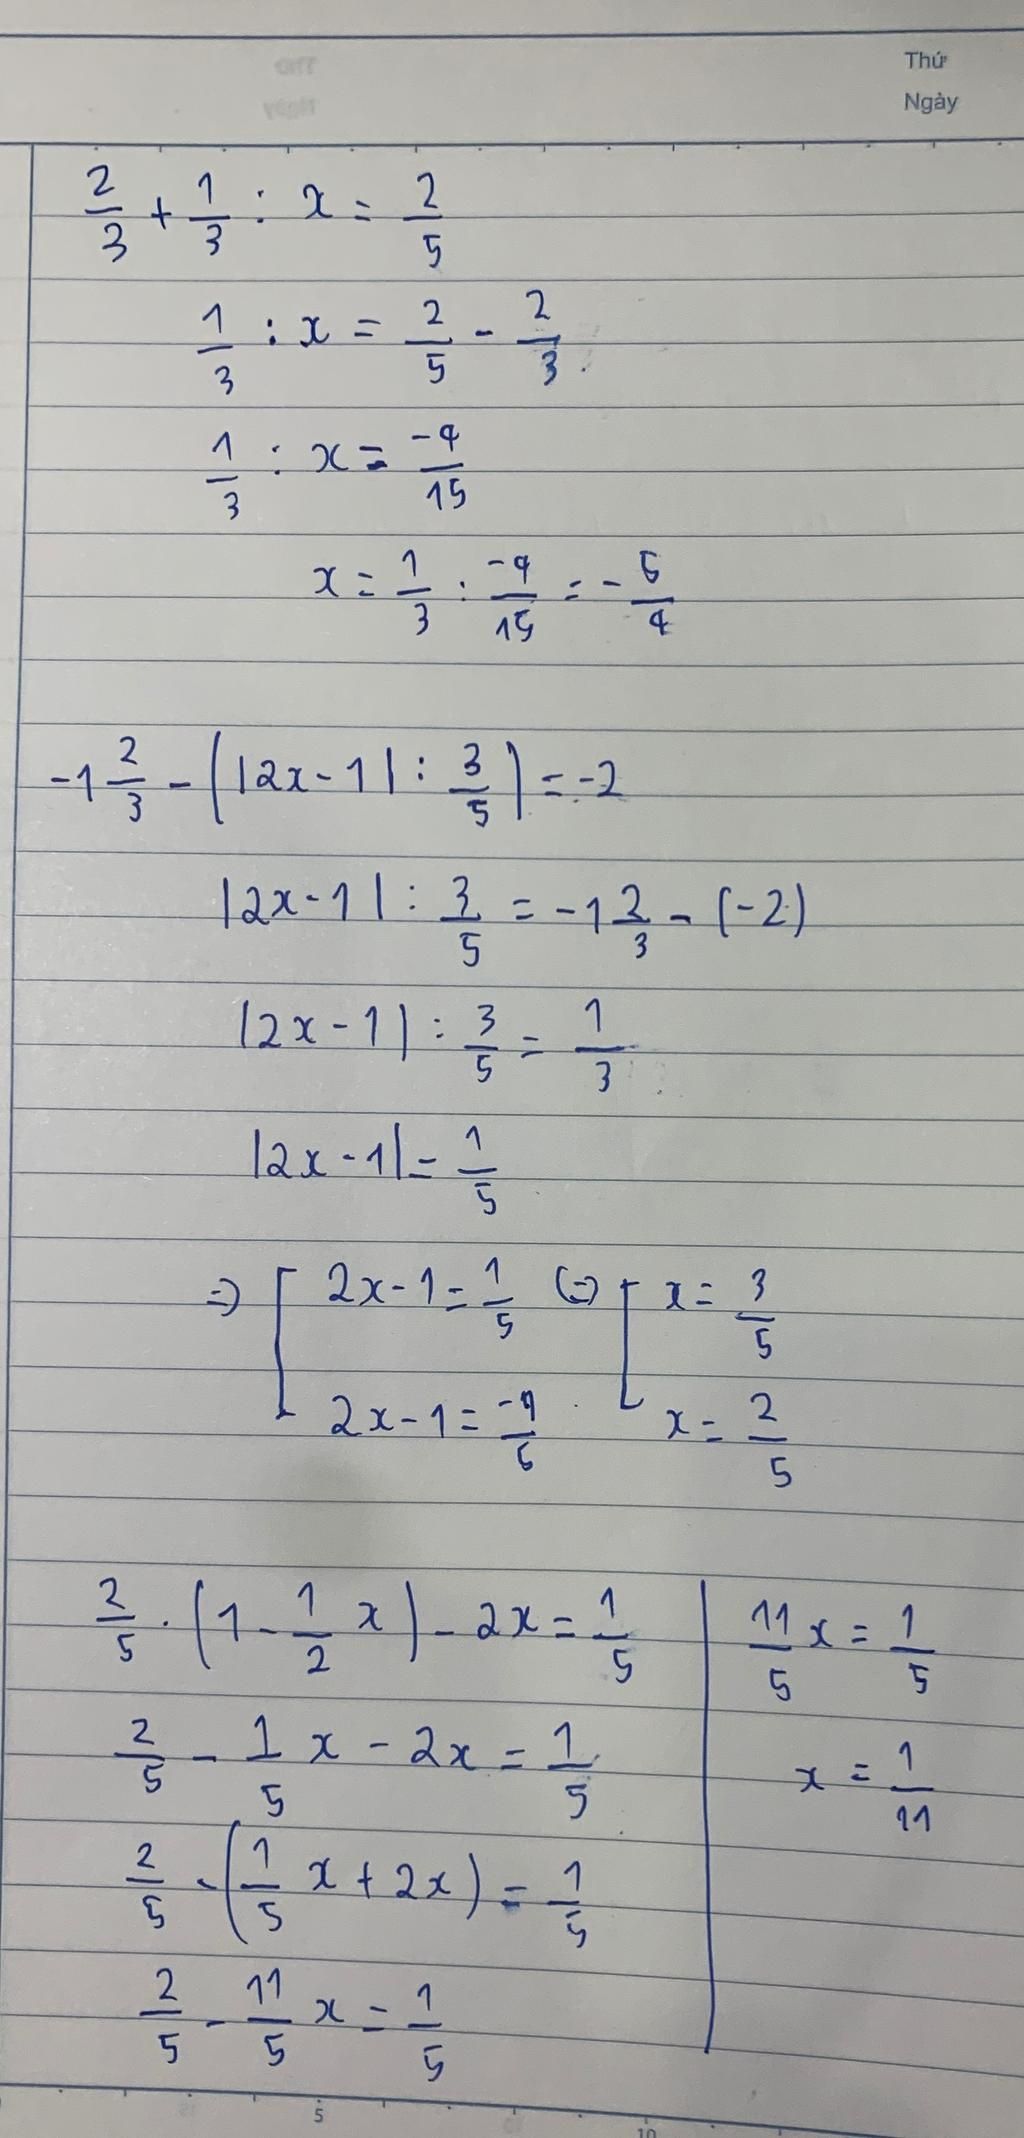 Thứ
Ngày
2/3 + 1/3 : x = 2/5
1/3 : x = 2/5 - 2/3
1/3 : x = -4/15
x = 1/3 : -4/15 = - 5/4
-1 2/3 - (|2x - 1| : 3/5) = -2
|2x - 1| : 3/5 = -1 2/3 - (-2)
|2x - 1| : 3/5 = 1/3
|2x - 1| = 1/5
=> [ 2x - 1 = 1/5 (=) [ x = 3/5
2x - 1 = -1/5 x = 2/5
2/5 . (1 - 1/2 x) - 2x = 1/5
2/5 - 1/5 x - 2x = 1/5
2/5 - (1/5 x + 2x) = 1/5
2/5 - 11/5 x = 1/5
11/5 x = 1/5
x = 1/11
5 10